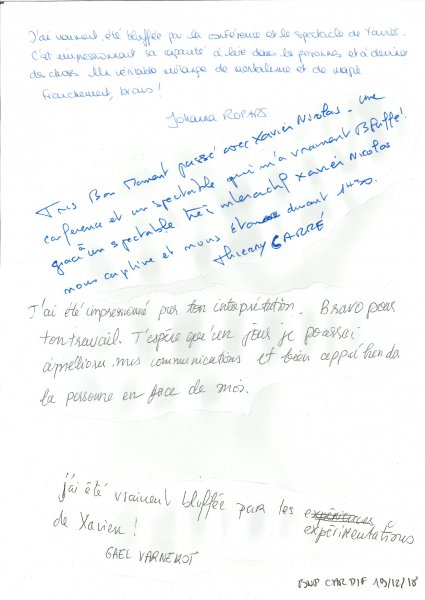 J'ai vraiment été bluffée par la conférence et le spectacle de Xavier.
C'est impressionnant sa capacité à lire dans les personnes et à deviner
des choses. Un véritable mélange de mentalisme et de magie
Franchement, bravo !
Johanna ROPARS
Très Bon Moment passé avec Xavier Nicolas. Une
conférence et un spectacle qui m'a vraiment Bluffé!
grâce à un spectacle très interactif Xavier Nicolas
nous captive et nous étonne durant 1H30.
Thierry CARRÉ
J'ai été impressionné par ton interprétation. Bravo pour
ton travail. J'espère qu'un jour je pourrai
améliorer mes communications et bien appréhender
la personne en face de moi.
j'ai été vraiment bluffée par les expériences
expérimentations
de Xavier !
GAEL VARNEROT
BNP CARDIF 19/12/18